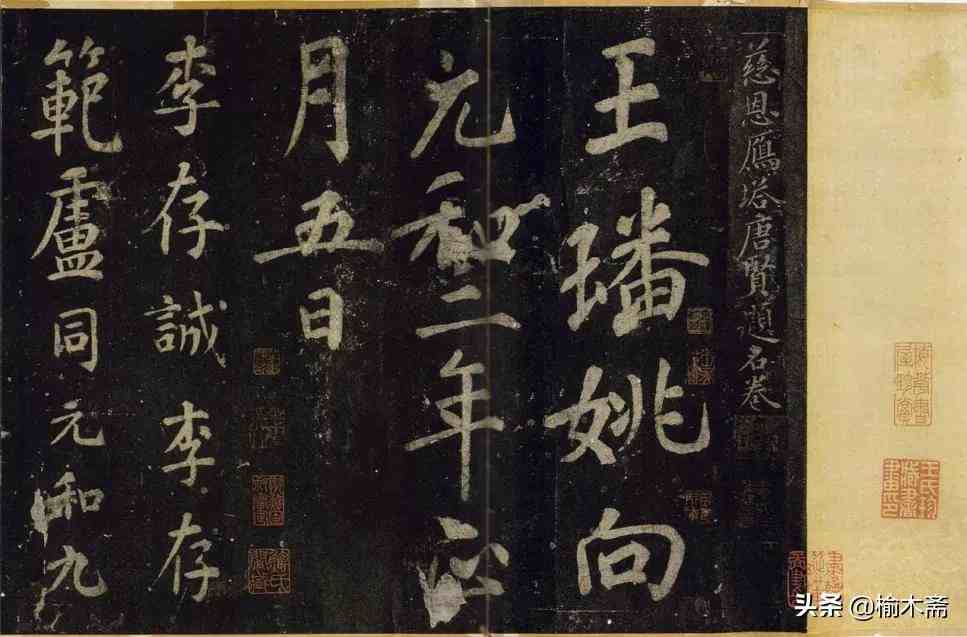 慈恩鴈塔唐賢題名卷
王璠姚向
元和二年正
月五日
李存誠 李存
範盧同元和九
头条 @榆木斋